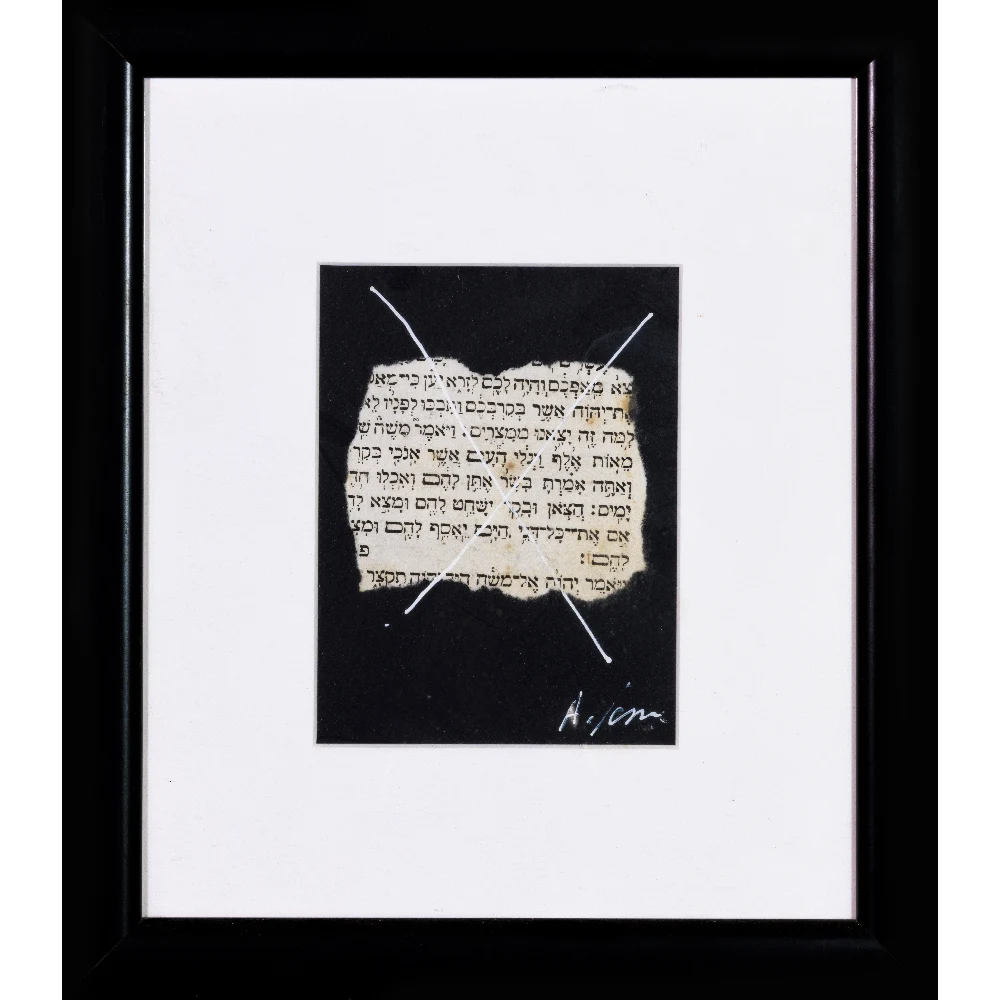 צֵא מֵאַפְּכֶם וְהָיָה לָכֶם לְזָרָא יַעַן כִּי־מְאַס
אֶת־יְהוָה אֲשֶׁר בְּקִרְבְּכֶם וַתִּבְכּוּ לְפָנָיו לֵא
לָמָּה זֶּה יָצָאנוּ מִמִּצְרָיִם: וַיֹּאמֶר מֹשֶׁה שׁ
מֵאוֹת אֶלֶף רַגְלִי הָעָם אֲשֶׁר אָנֹכִי בְּקִר
וְאַתָּה אָמַרְתָּ בָּשָׂר אֶתֵּן לָהֶם וְאָכְלוּ חֹדֶ
יָמִים: הֲצֹאן וּבָקָר יִשָּׁחֵט לָהֶם וּמָצָא לָהֶ
אִם אֶת־כָּל־דְּגֵי הַיָּם יֵאָסֵף לָהֶם וּמָצָ
לָהֶם: פ
וַיֹּאמֶר יְהוָה אֶל־מֹשֶׁה הֲיַד יְהוָה תִּקְצָר